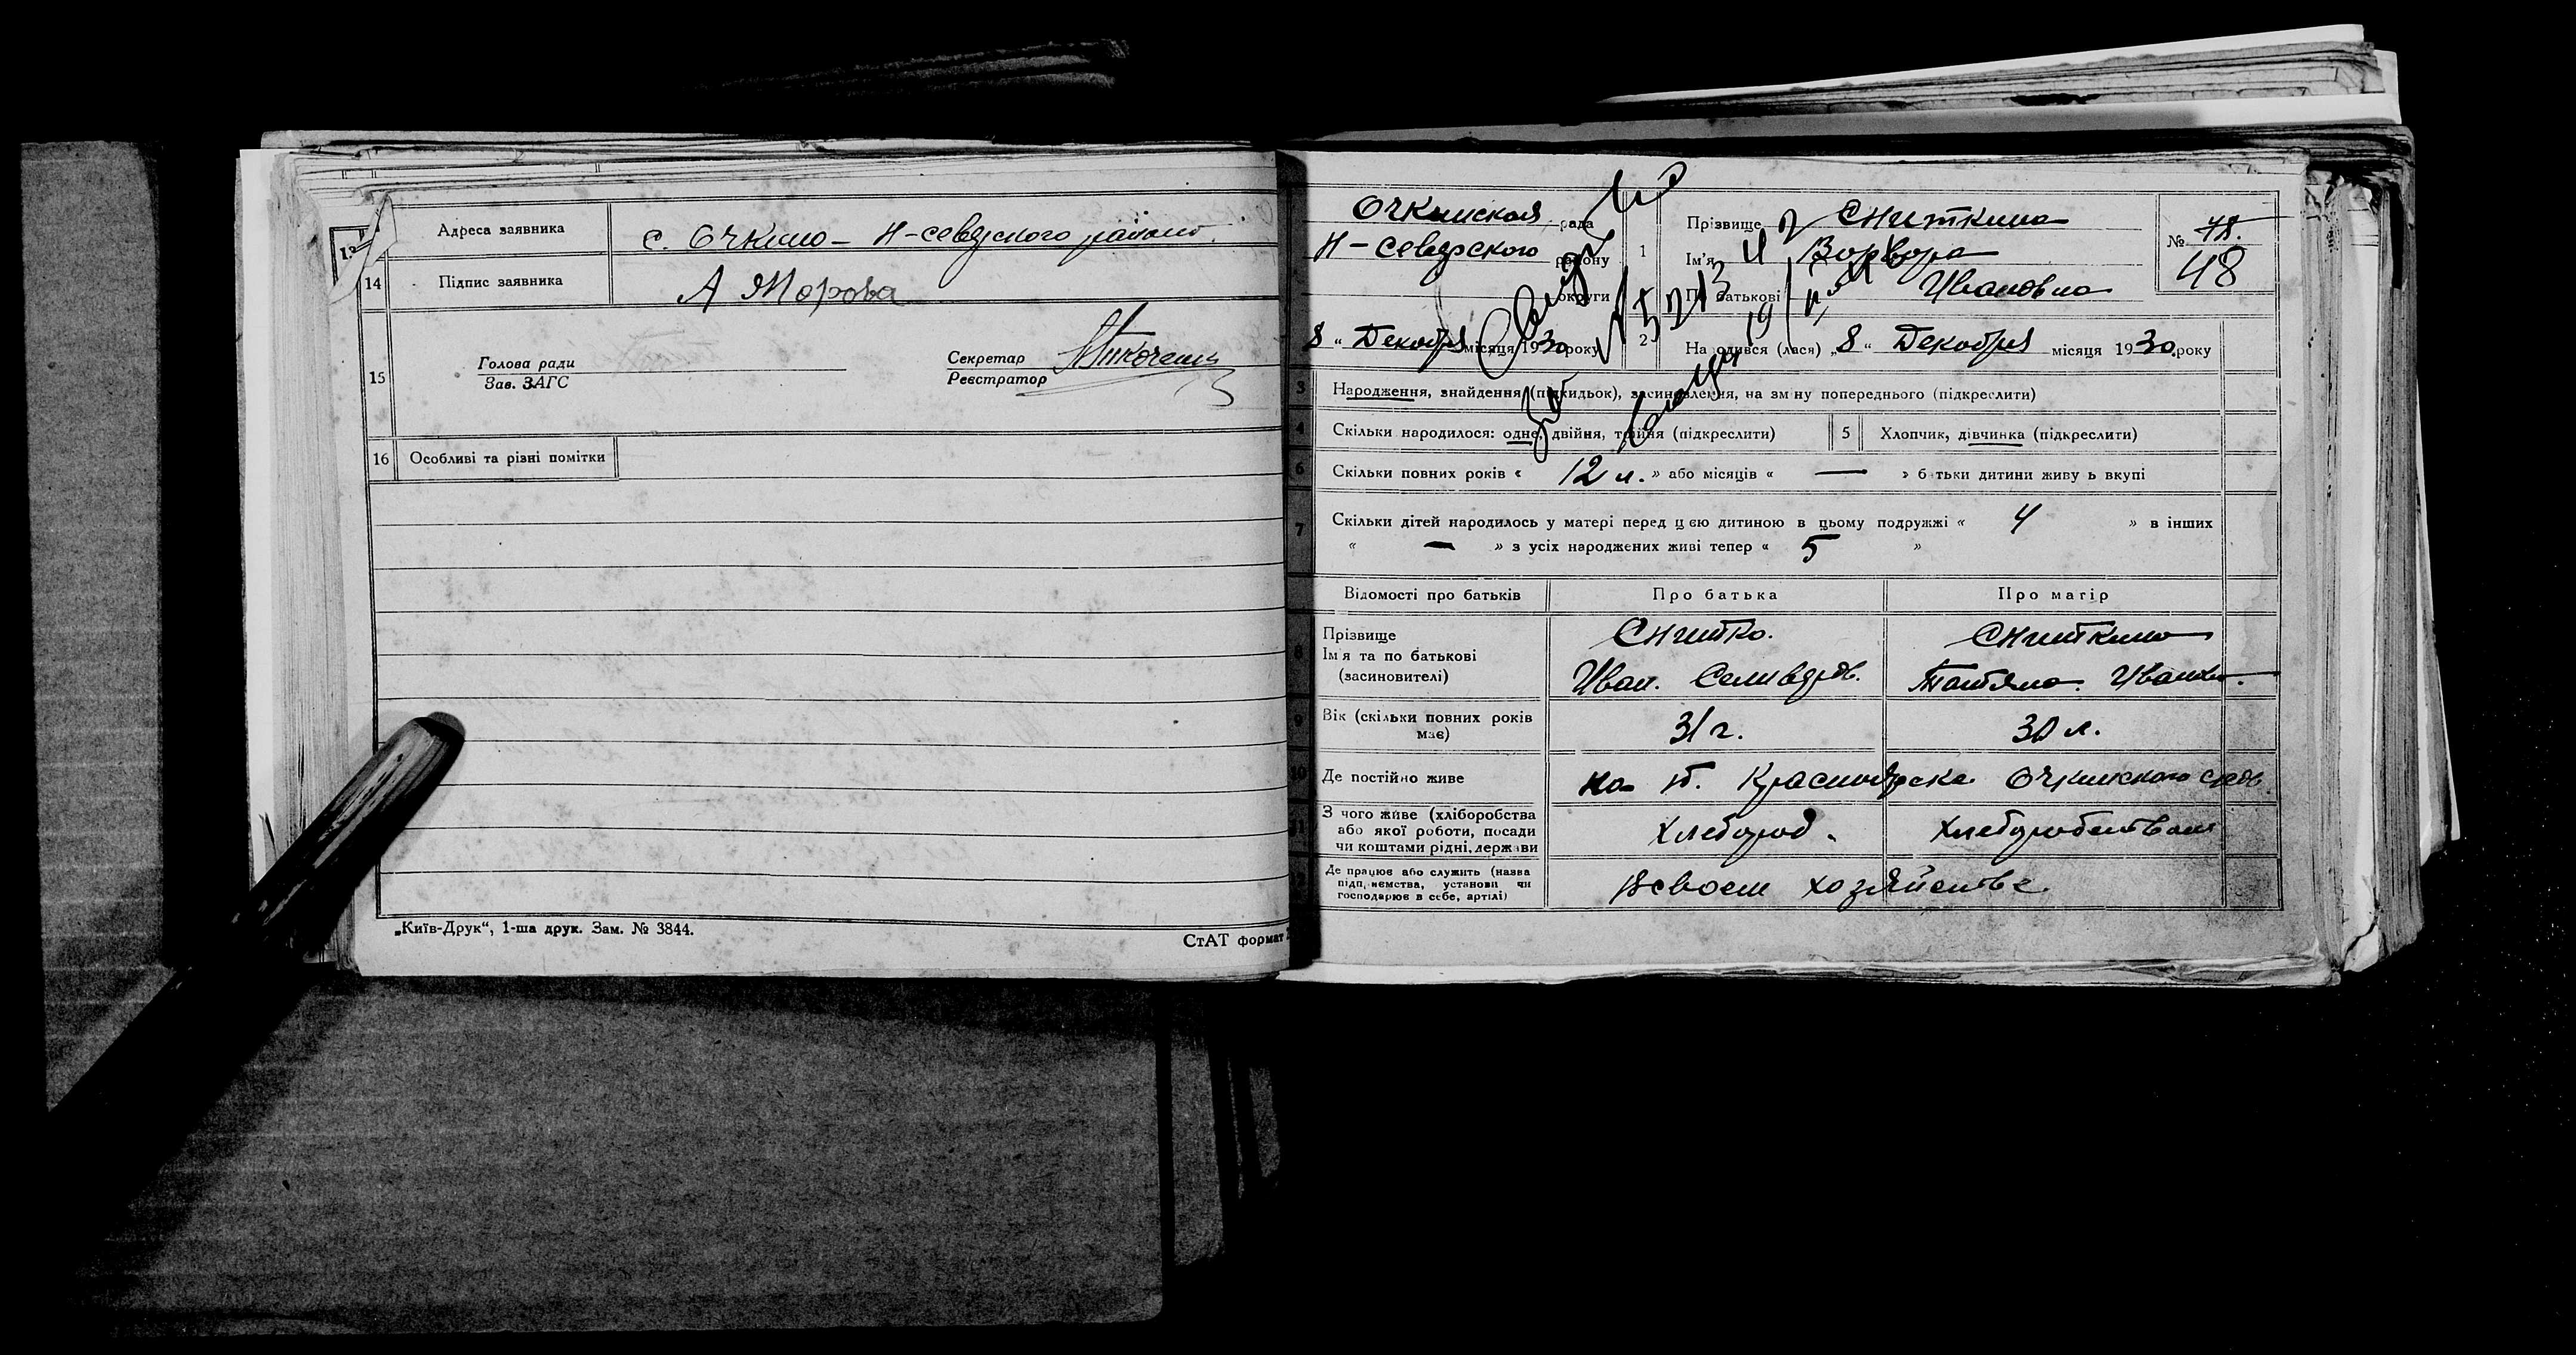 13
14
Адреса заявника
с. Очкино – Н-северского района.
Підпис заявника
А Морова
15
Голова ради
Зав. ЗАГС
Секретар
Реєстратор
16 Особливі та різні помітки
„Київ-Друк“, 1-ша друк. Зам. № 3844.
СтАТ формат
Очкинская рада
Н-северского району
округи
8 “ Декабря місяця 1930 року
1
Прізвище Сниткина
Ім'я Варвара
По батькові Ивановна
№ 48
2
Народився (лася) „8“ Декабря місяця 1930 року
3 Народження, знайдення (підкидьок), засиновлення, на зміну попереднього (підкреслити)
4 Скільки народилося: одне, двійня, трійня (підкреслити)
5 Хлопчик, дівчинка (підкреслити)
6 Скільки повних років « 12 л. » або місяців « — » батьки дитини живуть вкупі
7 Скільки дітей народилось у матері перед цією дитиною в цьому подружжі « 4 » в інших
« — » з усіх народжених живі тепер « 5 »
Відомості про батьків
Про батька
Про матір
8
Прізвище
Ім'я та по батькові
(засиновителі)
Снитко.
Иван. Селиверов.
Сниткина
Татяна. Иванов.
9
Вік (скільки повних років має)
31 г.
30 л.
10
Де постійно живе
на п. Красноярске Очкинского сов.
11
З чого живе (хліборобства або якої роботи, посади чи коштами рідні, держави
Хлебороб.
Хлеборобством
Де працює або служить (назва підприємства, установи чи господарює в себе, артілі)
В своем хозяйстве